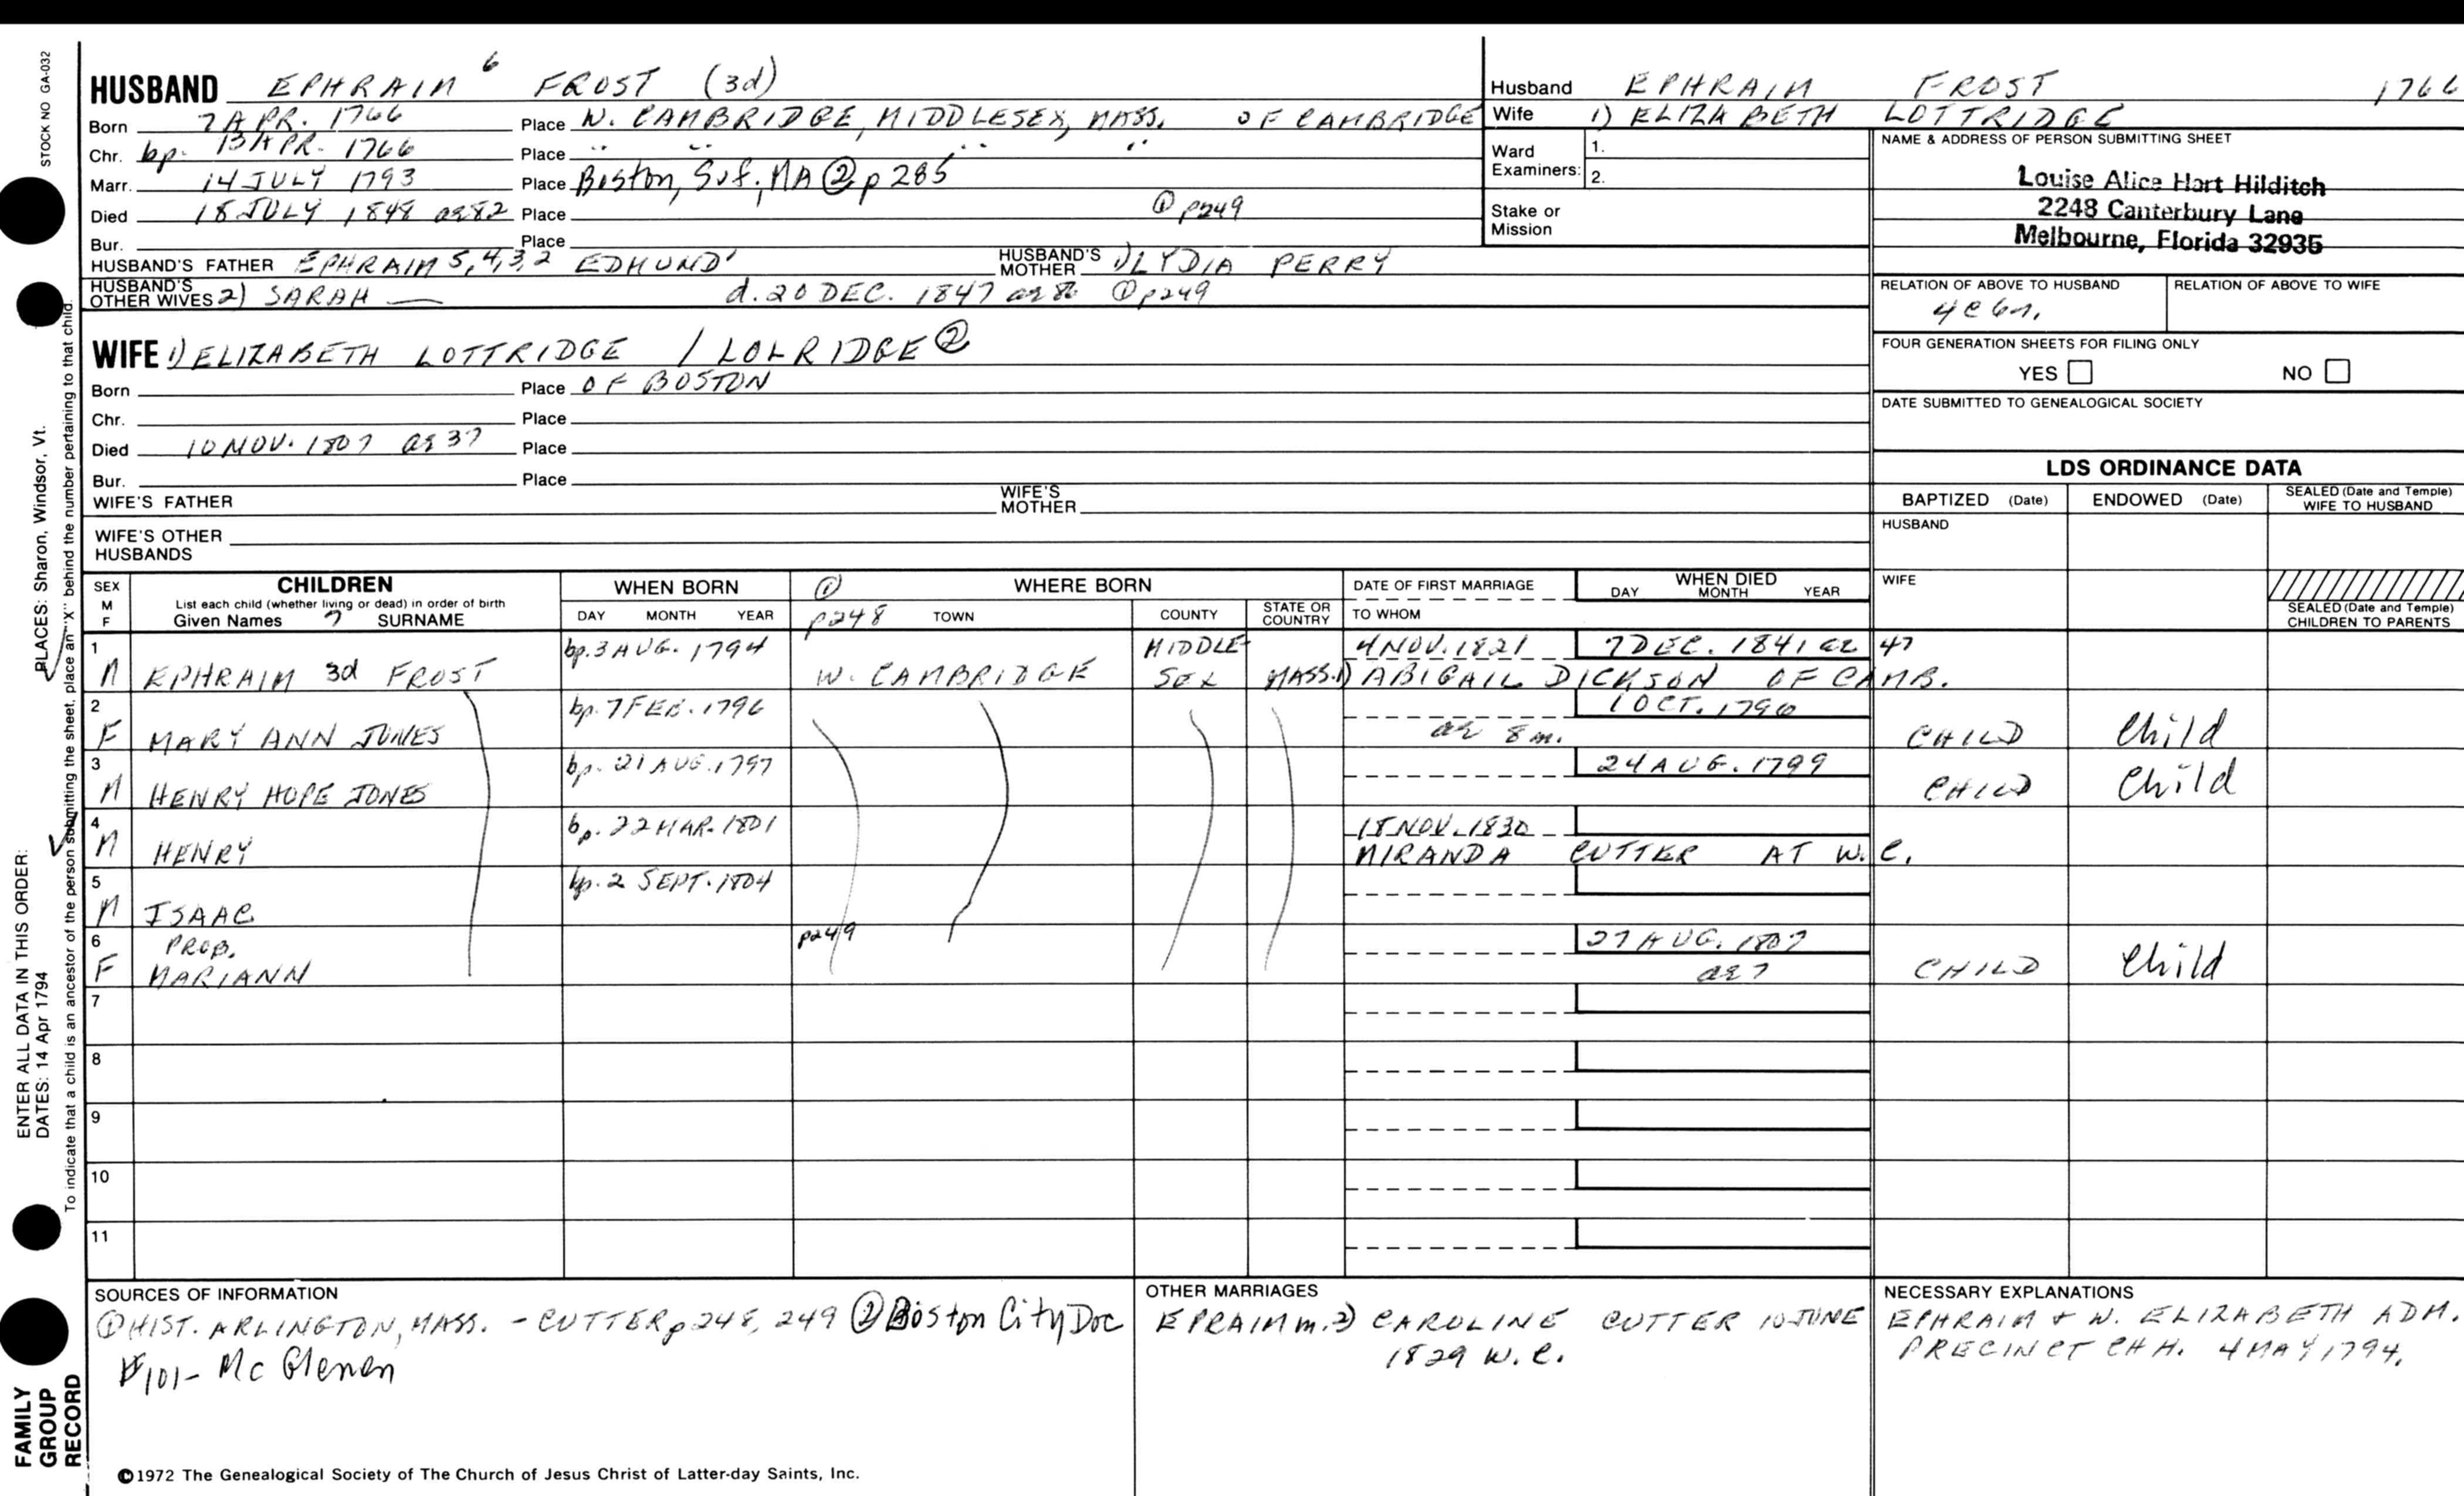 STOCK NO GA-032
HUSBAND EPHRAIM 6 FROST (3d)
Born 7 APR. 1766 Place W. CAMBRIDGE, MIDDLESEX, MASS. OF CAMBRIDGE
Chr. bp. 13 APR. 1766 Place " " " "
Marr. 14 JULY 1793 Place Boston, Suf., MA ② p 285
Died 18 JULY 1848 ae 82 Place ① p249
Bur. Place
HUSBAND'S FATHER EPHRAIM 5,4,3,2 EDMUND 1 HUSBAND'S MOTHER 1) LYDIA PERRY
HUSBAND'S OTHER WIVES 2) SARAH — d. 20 DEC. 1847 ae ① p249
Husband EPHRAIM FROST 1766
Wife 1) ELIZABETH LOTTRIDGE
Ward Examiners: 1.
2.
Stake or Mission
NAME & ADDRESS OF PERSON SUBMITTING SHEET
Louise Alice Hart Hilditch
2248 Canterbury Lane
Melbourne, Florida 32935
RELATION OF ABOVE TO HUSBAND RELATION OF ABOVE TO WIFE
4c 6r.
FOUR GENERATION SHEETS FOR FILING ONLY
YES NO
DATE SUBMITTED TO GENEALOGICAL SOCIETY
WIFE 1) ELIZABETH LOTTRIDGE / LOLRIDGE ②
Born Place OF BOSTON
Chr. Place
Died 10 NOV. 1807 ae 37 Place
Bur. Place
WIFE'S FATHER WIFE'S MOTHER
WIFE'S OTHER HUSBANDS
LDS ORDINANCE DATA
BAPTIZED (Date) ENDOWED (Date) SEALED (Date and Temple) WIFE TO HUSBAND
HUSBAND
WIFE
SEALED (Date and Temple) CHILDREN TO PARENTS
SEX M F CHILDREN WHEN BORN ① WHERE BORN DATE OF FIRST MARRIAGE WHEN DIED
List each child (whether living or dead) in order of birth
Given Names 7 SURNAME DAY MONTH YEAR p248 TOWN COUNTY STATE OR COUNTRY TO WHOM DAY MONTH YEAR
1 bp. 3 AUG. 1794 MIDDLE- 4 NOV. 1821 7 DEC. 1841 ae 47
M EPHRAIM 3d FROST W. CAMBRIDGE SEX MASS. 1) ABIGAIL DICKSON OF CAMB.
2 bp. 7 FEB. 1796 1 OCT. 1796
F MARY ANN JONES ae 8 m. CHILD Child
3 bp. 21 AUG. 1797 24 AUG. 1799
M HENRY HOPE JONES CHILD Child
4 bp. 22 MAR. 1801 18 NOV. 1830
M HENRY MIRANDA CUTTER AT W. C.
5 bp. 2 SEPT. 1804
M ISAAC
6 PROB. p249 27 AUG. 1807
F MARIANN ae 7 CHILD Child
7
8
9
10
11
SOURCES OF INFORMATION
① HIST. ARLINGTON, MASS. - CUTTER p 248, 249 ② Boston City Doc
#101- Mc Glenen
OTHER MARRIAGES
EPRAIM m. 2) CAROLINE CUTTER 10 JUNE
1829 W. C.
NECESSARY EXPLANATIONS
EPHRAIM + W. ELIZABETH ADM.
PRECINCT CHH. 4 MAY 1794.
©1972 The Genealogical Society of The Church of Jesus Christ of Latter-day Saints, Inc.
FAMILY
GROUP
RECORD
ENTER ALL DATA IN THIS ORDER:
DATES: 14 Apr 1794
PLACES: Sharon, Windsor, Vt.
To indicate that a child is an ancestor of the person submitting the sheet, place an "X" behind the number pertaining to that child.